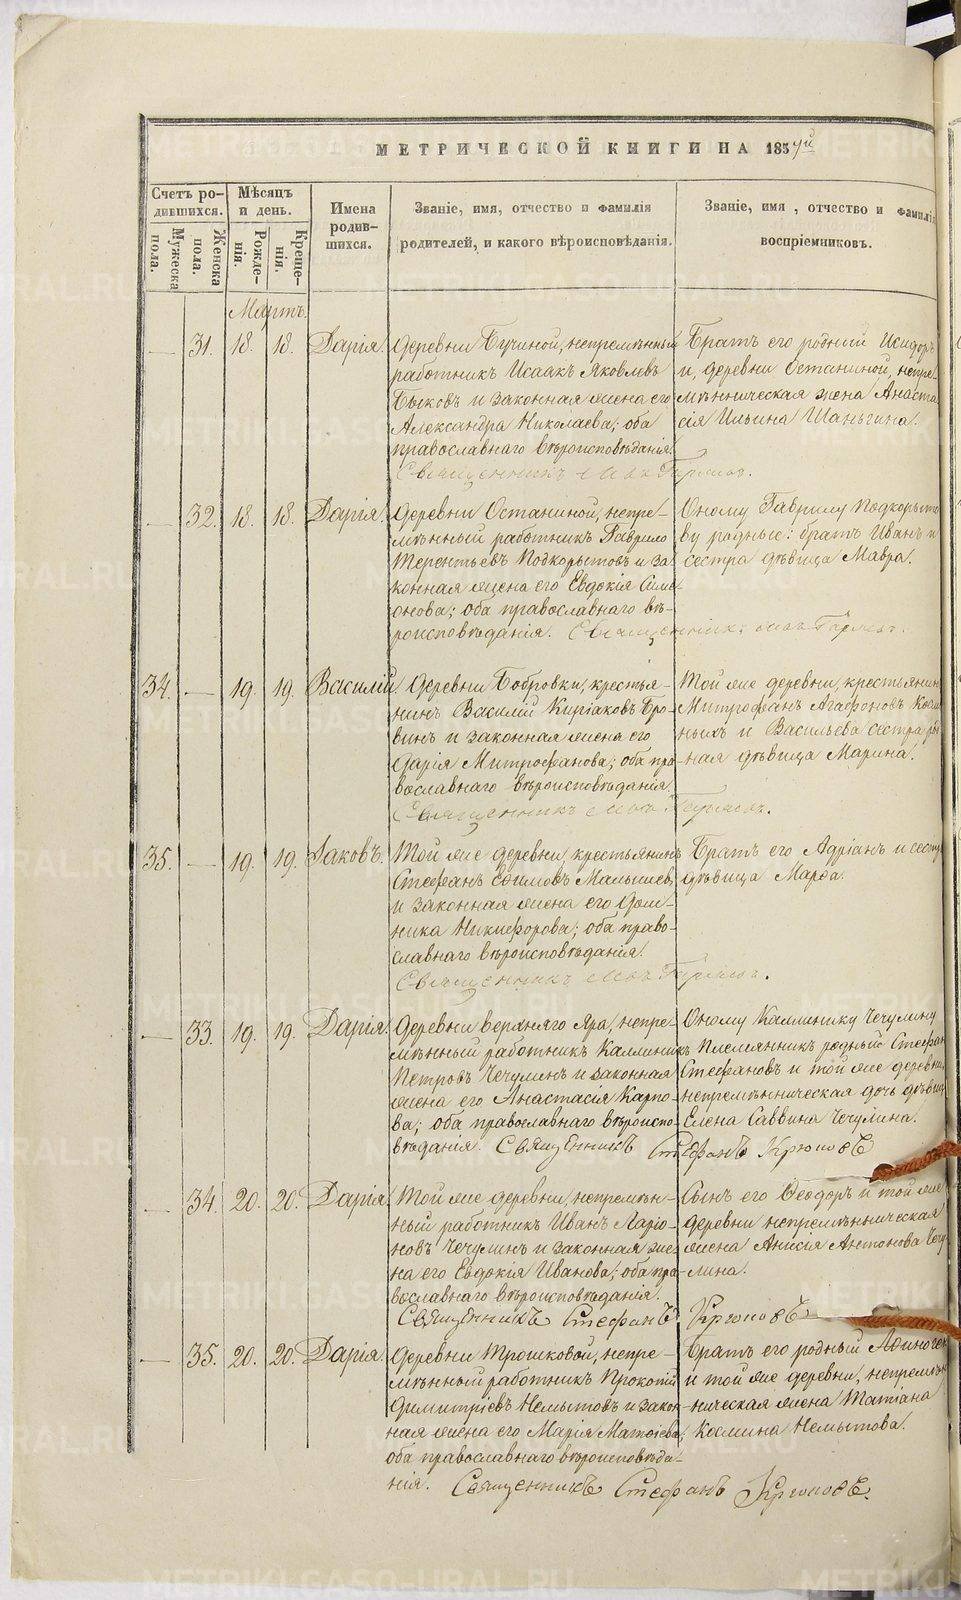 МЕТРИЧЕСКОЙ КНИГИ НА 1857й
Счетъ ро-
дившихся.
Мужеска
пола.
Женска
пола.
Мѣсяцъ
и день.
Рожде-
нія.
Креще-
нія.
Имена
родив-
шихся.
Званіе, имя, отчество и фамилія
родителей, и какого вѣроисповѣданія.
Званіе, имя, отчество и фамилія
воспріемниковъ.
Мартъ.
— 31. 18. 18. Дарія.
Деревни Бучиной, непремѣнный
работникъ Исаакъ Яковлевъ
Быковъ и законная жена его
Александра Николаева; оба
православнаго вѣроисповѣданія.
Священникъ
Братъ его родний Исидоръ
и, деревни Останиной, непре-
мѣнническая жена Анаста
сія Ильина Шаньгина.
— 32. 18. 18. Дарія.
Деревни Останиной, непре-
мѣнный работникъ Гаврило
Терентьевъ Подкорытовъ и за-
конная жена его Евдокія Симе-
онова; оба православнаго вѣ-
роисповѣданія. Священникъ
Оному Гаврилу Подкорыто
ву родные: братъ Иванъ и
сестра дѣвица Мавра.
34. — 19. 19. Василій
Деревни Бобровки, крестья-
нинъ Василій Киріаковъ Бро-
винъ и законная жена его
Дарія Митрофанова; оба пра-
вославнаго вѣроисповѣданія.
Священникъ
Той же деревни, крестьянинъ
Митрофанъ Агафоновъ
и Васильева сестра род
ная дѣвица Марина.
35. — 19. 19. Іаковъ.
Той же деревни, крестьянинъ
Стефанъ Ефимовъ Малышевъ,
и законная жена его Дом-
ника Никифорова; оба право-
славнаго вѣроисповѣданія.
Священникъ
Братъ его Адріанъ и сестра
дѣвица Марѳа.
— 33. 19. 19. Дарія.
Деревни верхняго Яра, непре-
мѣнный работникъ Каллиникъ
Петровъ Чечулинъ и законная
жена его Анастасія Карпо-
ва; оба православнаго вѣроиспо-
вѣданія. Священникъ Стефанъ Крюковъ
Оному Каллинику Чечулину
Племянникъ родный Стефанъ
Стефановъ и той же деревни,
непремѣнническая дочь дѣвица
Елена Саввина Чечулина.
— 34. 20. 20. Дарія.
Той же деревни, непремѣн-
ный работникъ Иванъ Ларіо-
новъ Чечулинъ и законная же-
на его Евдокія Иванова; оба пра-
вославнаго вѣроисповѣданія.
Священникъ Стефанъ Крюковъ
Сынъ его Ѳеодоръ и той же
деревни непремѣнническая
жена Анисія Антонова Чечу
лина.
— 35. 20. 20. Дарія.
Деревни Трошковой, непре-
мѣнный работникъ Прокопій
Димитріевъ Немытовъ и закон-
ная жена его Марія Матѳіева,
оба православнаго вѣроисповѣда-
нія. Священникъ Стефанъ Крюковъ.
Братъ его родный Аѳиноген
и той же деревни, непремѣн
ническая жена Татіана
Космина Немытова.